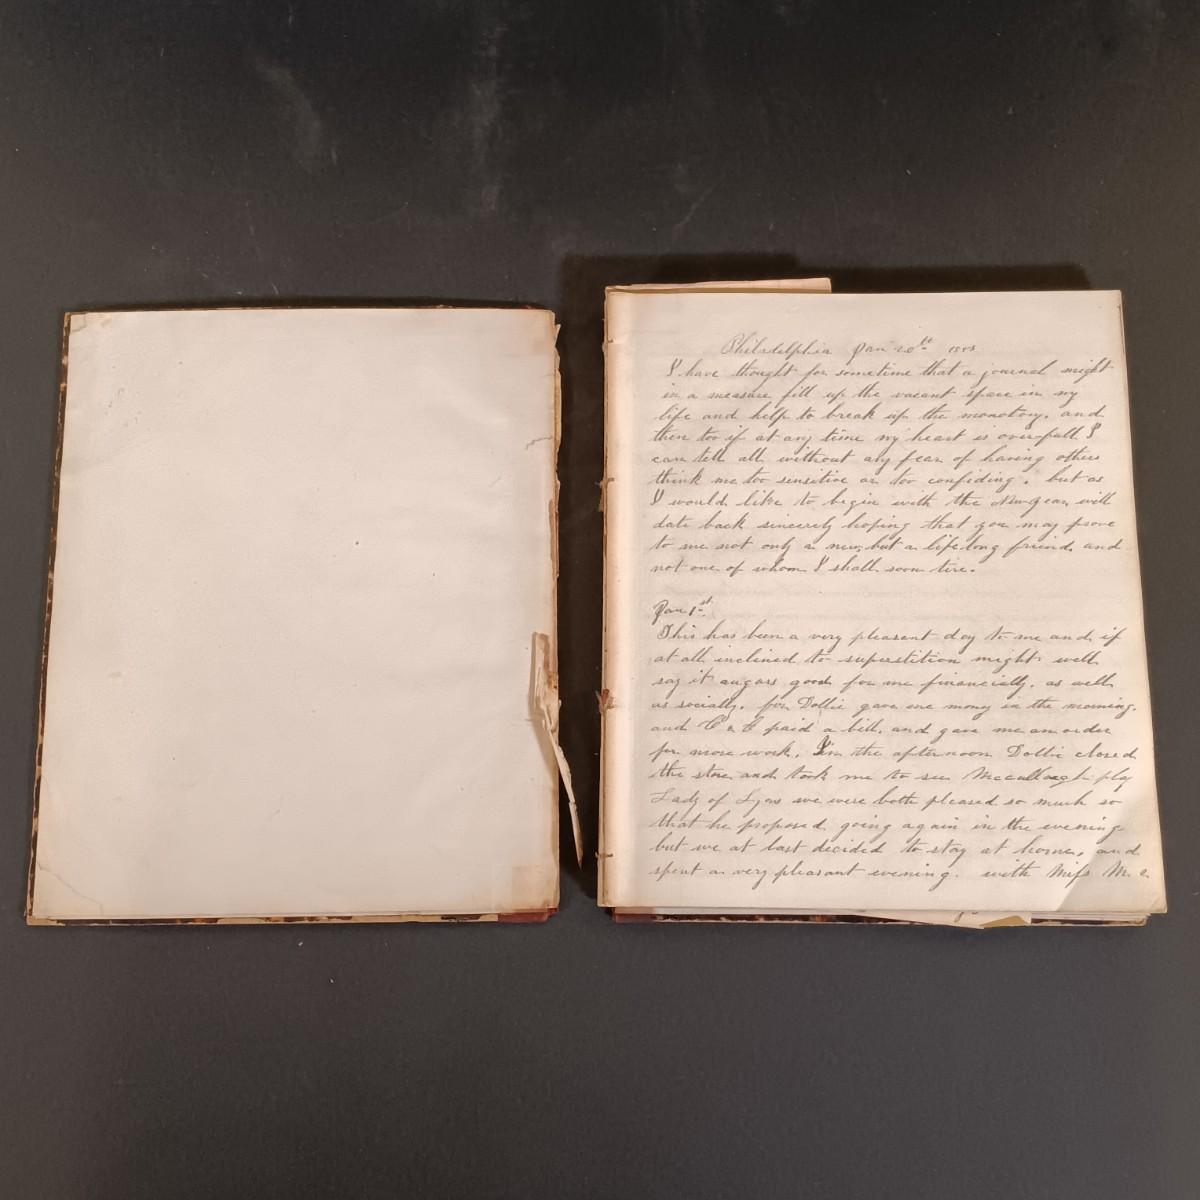 Philadelphia Jan 20th
I have thought for sometime that a journal might
in a measure fill up the vacant space in my
life and help to break up the monotony. and
then too if at any time my heart is overfull I
can tell all without any fear of having others
think me too sensitive or too confiding. but as
I would like to begin with the New Year, will
date back sincerely hoping that you may prove
to me not only a new, but a life long friend, and
not one of whom I shall soon tire.
Jan 1st
This has been a very pleasant day to me and if
at all inclined to superstition might well
say it augars good for me financially, as well
as socially, for Dollie gave me money in the morning.
and C & G paid a bill, and gave me an order
for more work. In the afternoon Dollie closed
the store and took me to see Mccullough play
Lady of Lyons we were both pleased so much so
that he proposed going again in the evening
but we at last decided to stay at home, and
spent a very pleasant evening. with Miss M.